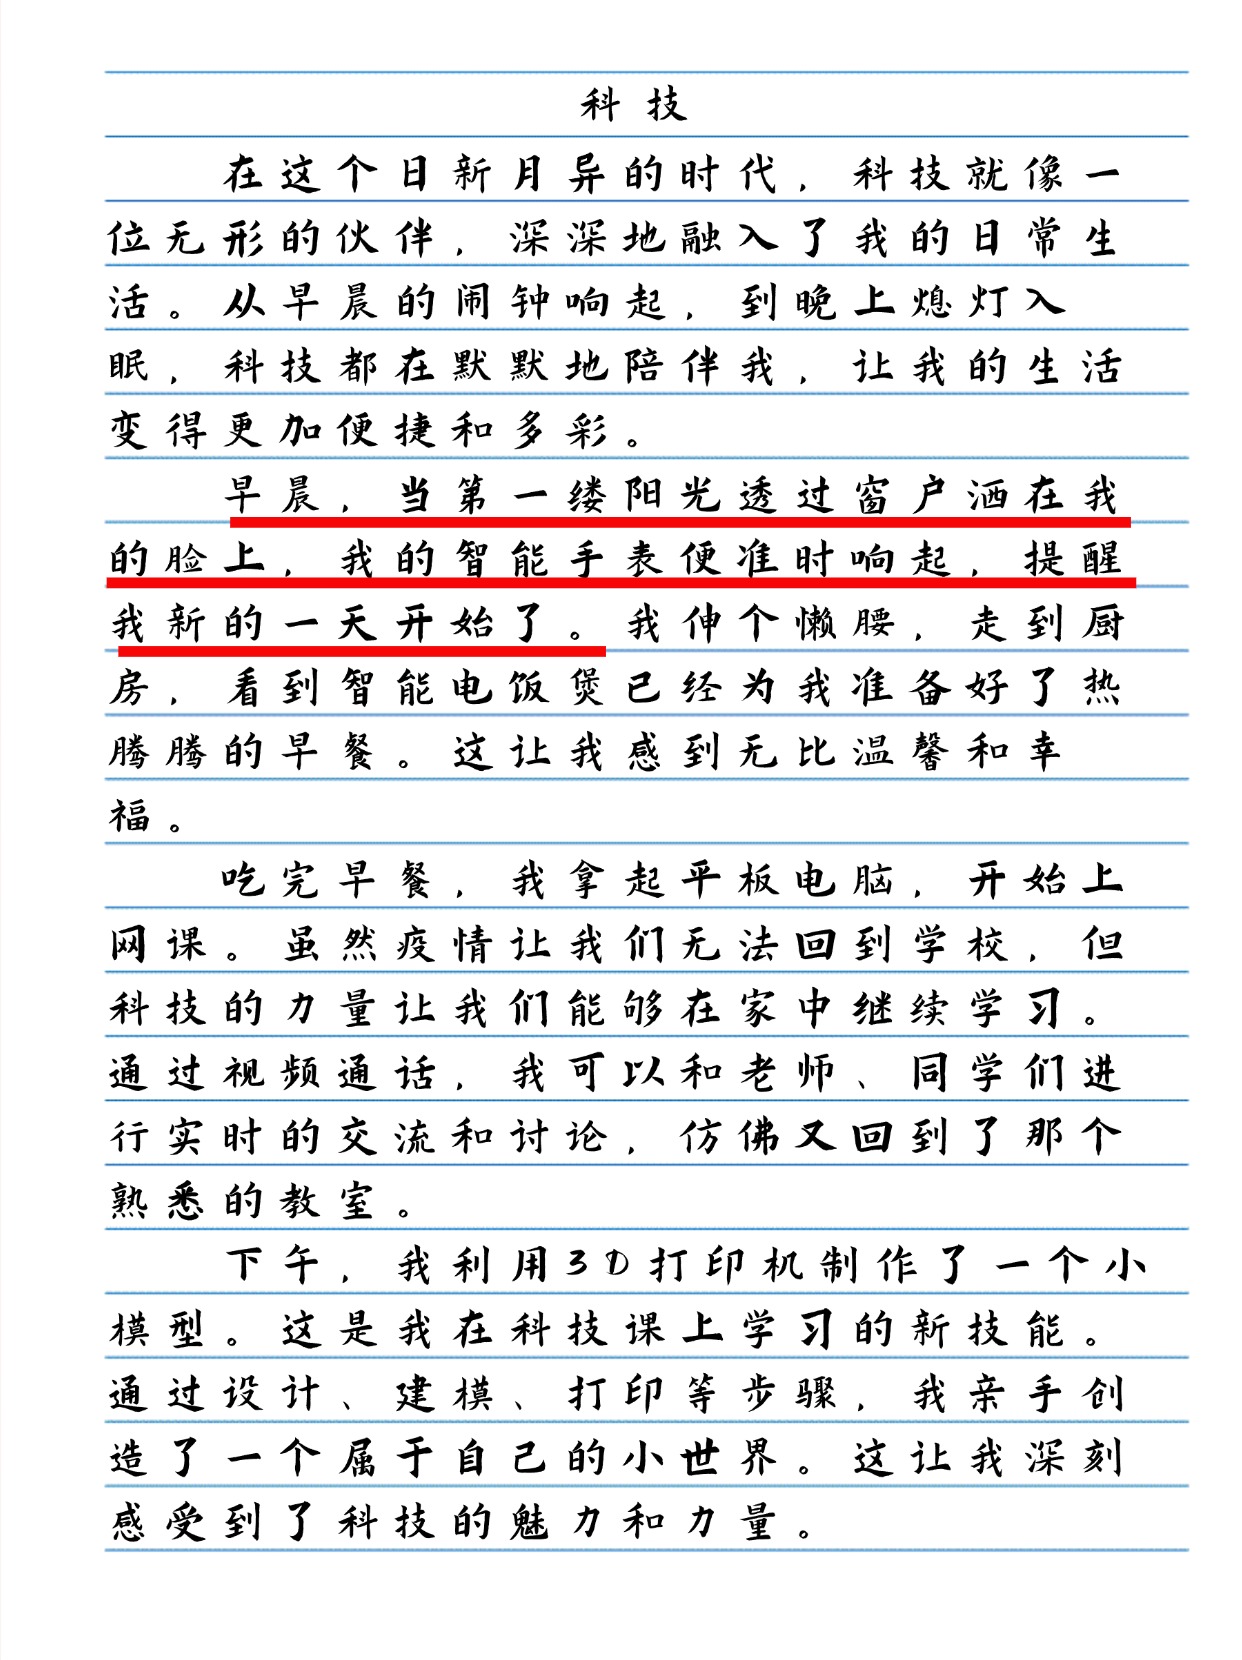 科技
在这个日新月异的时代，科技就像一
位无形的伙伴，深深地融入了我的日常生
活。从早晨的闹钟响起，到晚上熄灯入
眠，科技都在默默地陪伴我，让我的生活
变得更加便捷和多彩。
早晨，当第一缕阳光透过窗户洒在我
的脸上，我的智能手表便准时响起，提醒
我新的一天开始了。我伸个懒腰，走到厨
房，看到智能电饭煲已经为我准备好了热
腾腾的早餐。这让我感到无比温馨和幸
福。
吃完早餐，我拿起平板电脑，开始上
网课。虽然疫情让我们无法回到学校，但
科技的力量让我们能够在家中继续学习。
通过视频通话，我可以和老师、同学们进
行实时的交流和讨论，仿佛又回到了那个
熟悉的教室。
下午，我利用3D打印机制作了一个小
模型。这是我在科技课上学习的新技能。
通过设计、建模、打印等步骤，我亲手创
造了一个属于自己的小世界。这让我深刻
感受到了科技的魅力和力量。